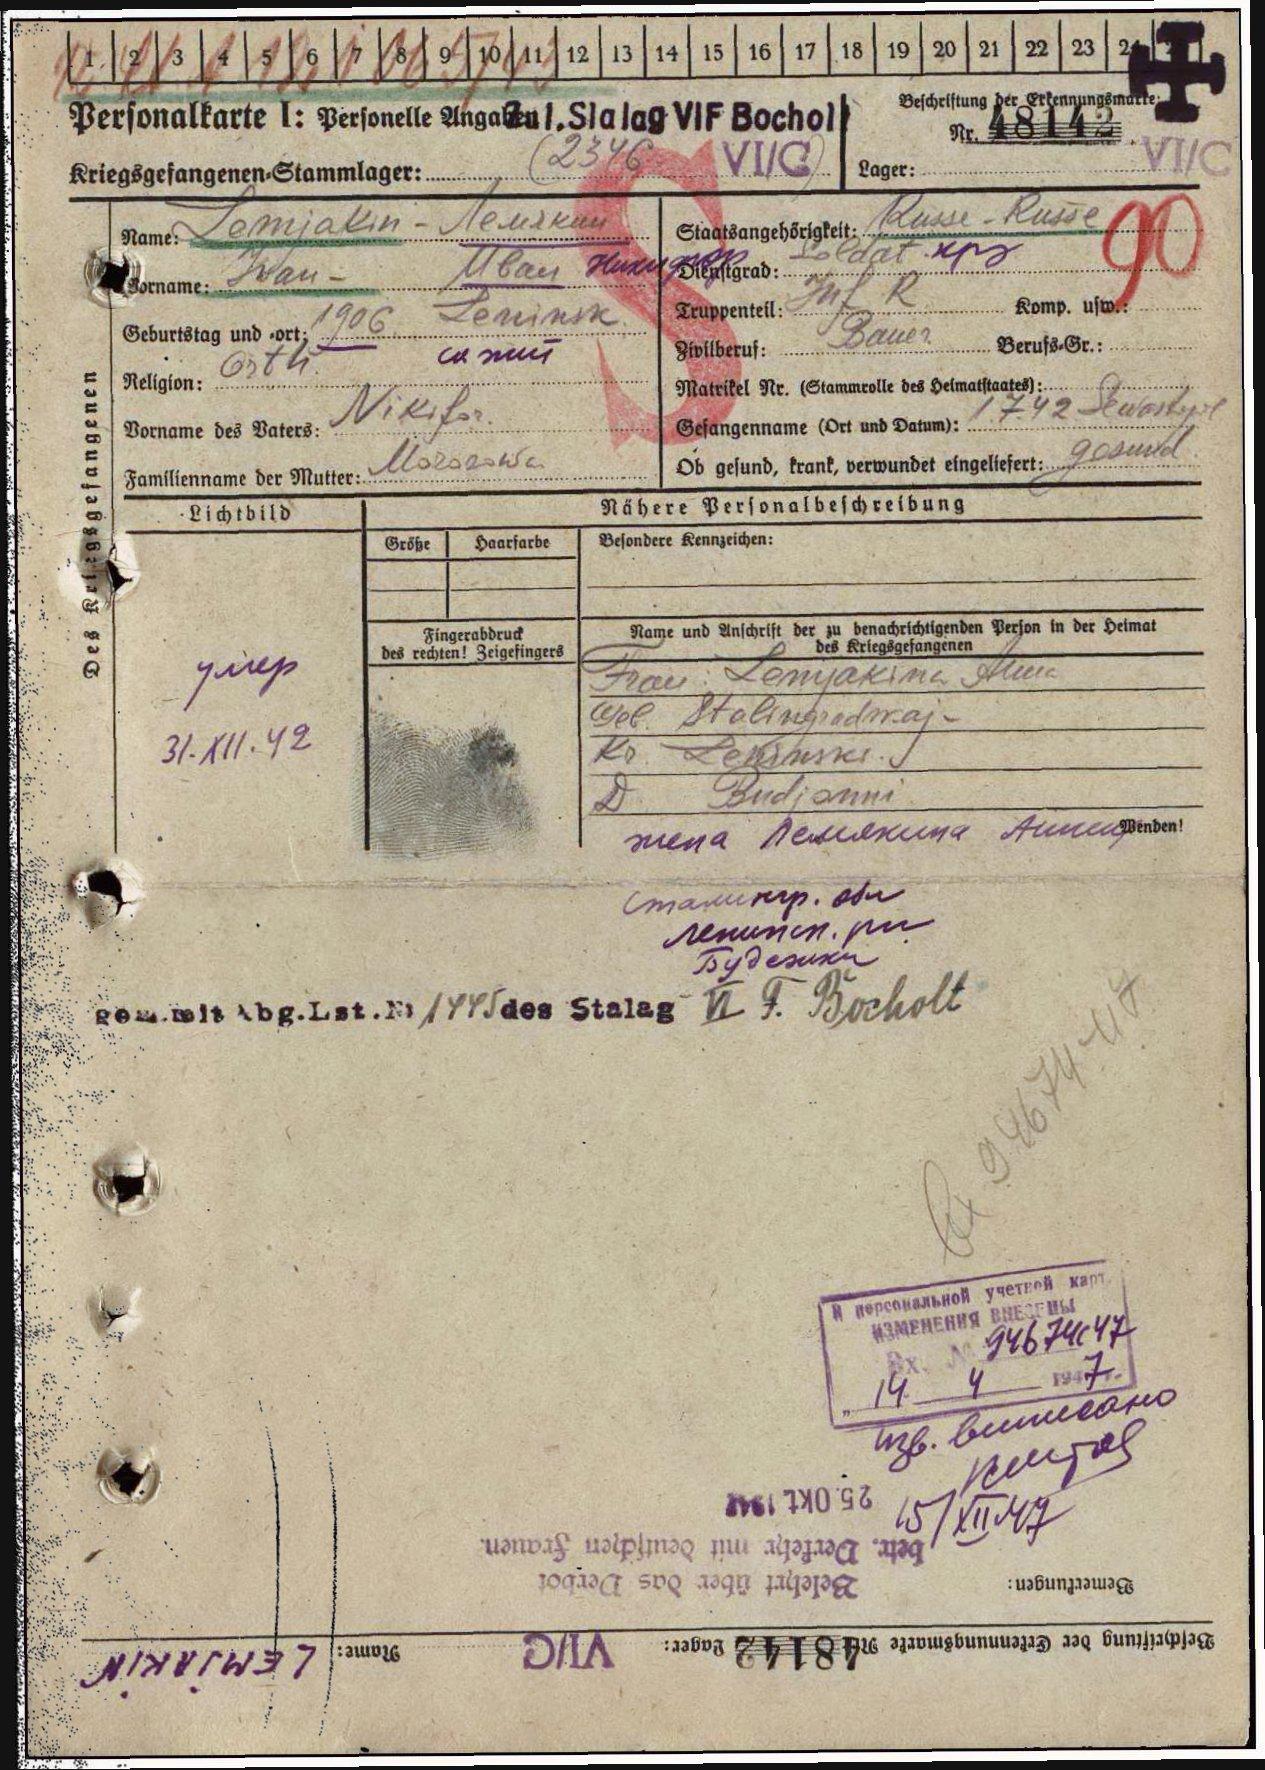 1 2 3 4 5 6 7 8 9 10 11 12 13 14 15 16 17 18 19 20 21 22 23 24
Personalkarte I: Personelle Angaben
Stalag VI F Bocholt
Beschriftung der Erkennungsmarke:
Nr. 48142
VI/C
Kriegsgefangenen-Stammlager: (2346) VI/C
Lager:
S
90
Des Kriegsgefangenen
Name: Lemjakin - Лемякин
Vorname: Iwan - Иван Никифор
Geburtstag und -ort: 1906 Leninsk
Religion: Orth.
Vorname des Vaters: Nikifor.
Familienname der Mutter: Morosowa
Staatsangehörigkeit: Russe - Russe
Dienstgrad: Soldat крз
Truppenteil: Inf R Komp. usw.:
Zivilberuf: Bauer Berufs-Gr.:
Matrikel Nr. (Stammrolle des Heimatstaates):
Gefangenname (Ort und Datum): 1.7.42 Sewastopol
Ob gesund, krank, verwundet eingeliefert: gesund
Lichtbild
Nähere Personalbeschreibung
Größe Haarfarbe
Besondere Kennzeichen:
Fingerabdruck
des rechten! Zeigefingers
Name und Anschrift der zu benachrichtigenden Person in der Heimat
des Kriegsgefangenen
Frau: Lemjakina Anna
Geb. Stalingradskaj-
Kr. Leninski.
D Budjonni
Wenden!
умер
31.XII.42
жена Лемякина Анна
Сталингр. обл
Ленинск. рн
Буденики
gem. mit Abg.Lst.Nr 1445 des Stalag VI F. Bocholt
Вх 94674-47
И персональной учетной карт.
ИЗМЕНЕНИЯ ВНЕСЕНЫ
Вх. № 94674с47
„ 14 4 1947 г.
изв. выписано
15/XII 47
25. OKT. 1942
betr. Verkehr mit deutschen Frauen.
Belehrt über das Verbot
Bemerkungen:
Beschriftung der Erkennungsmarke Nr. 48142 Lager: VI/C Name: LEMJAKIN